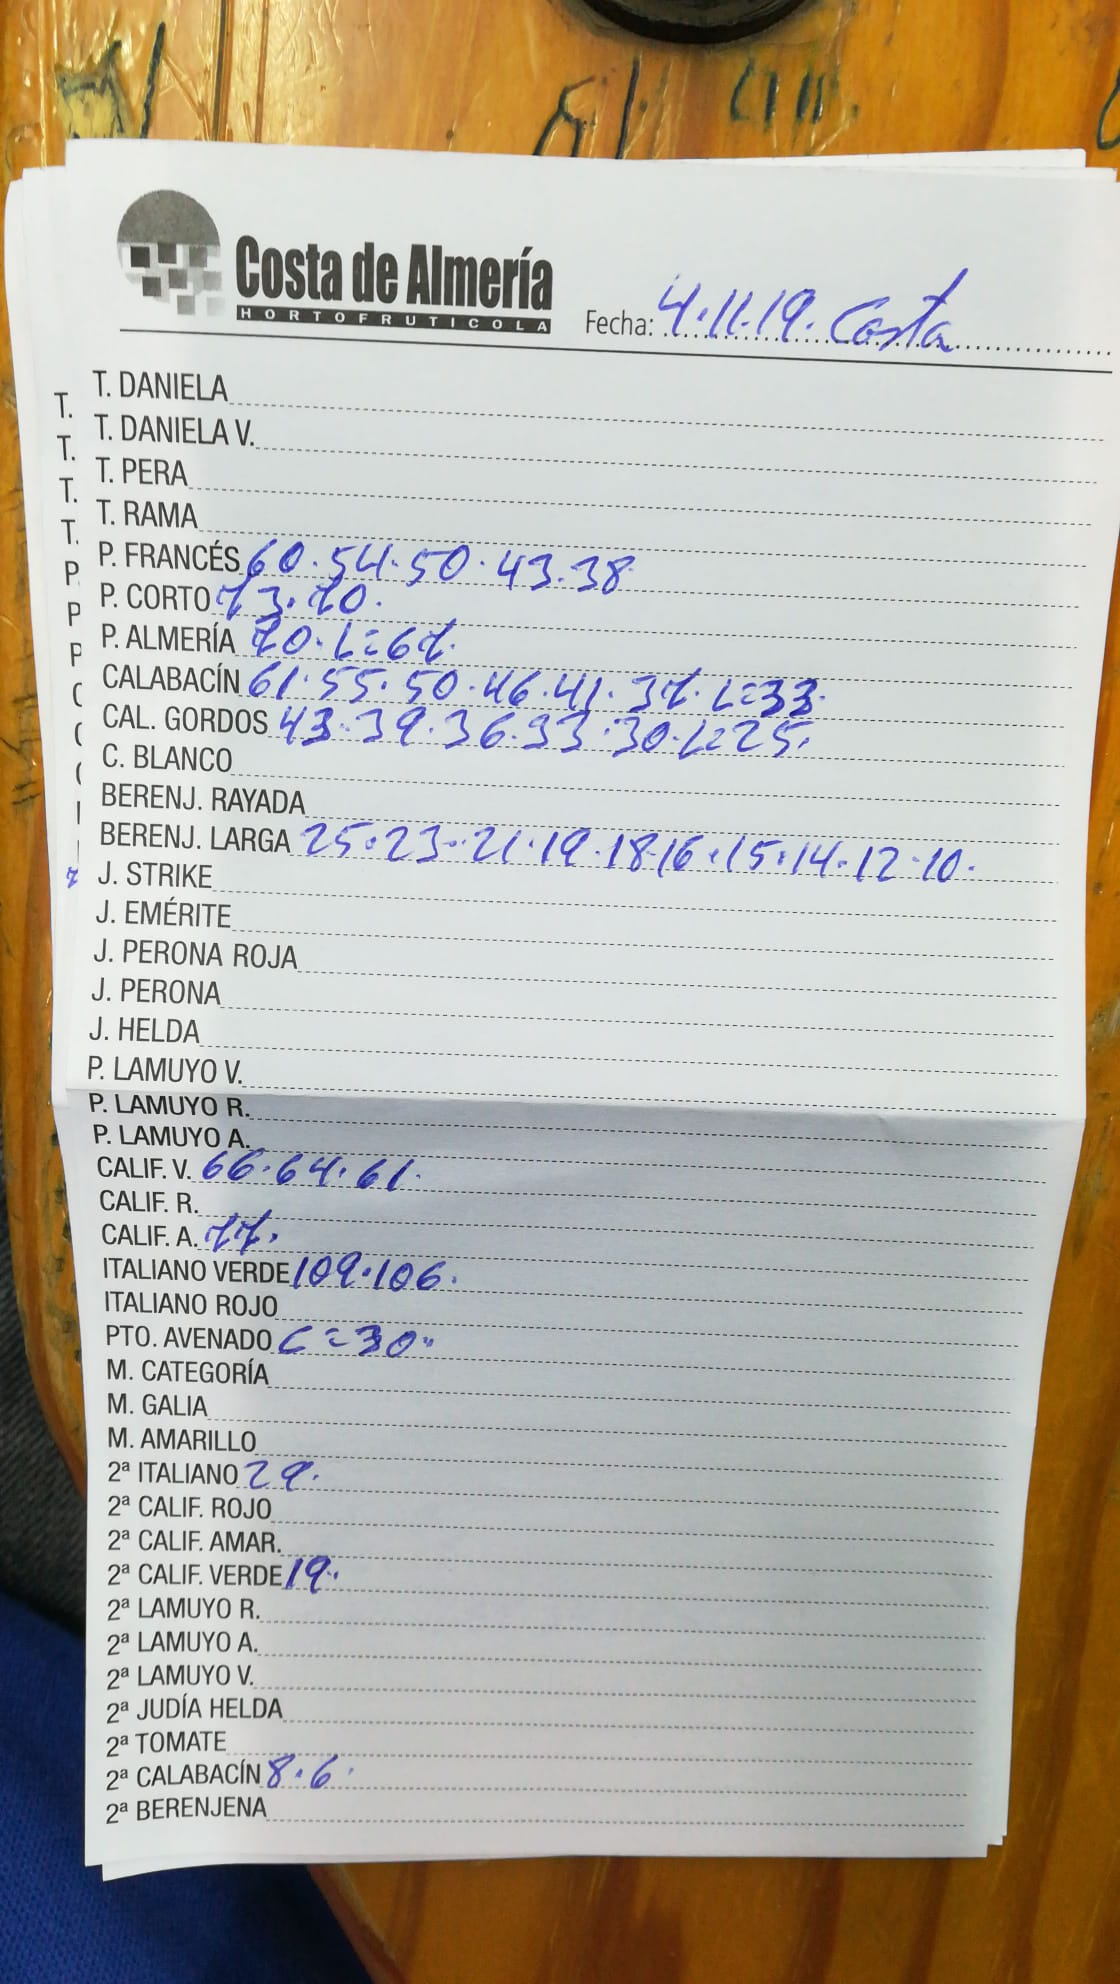 Costa de Almería
HORTOFRUTICOLA
Fecha: 4.11.19. Costa
T. DANIELA
T. DANIELA V.
T. PERA
T. RAMA
P. FRANCÉS 60.54.50.43.38
P. CORTO 73.70.
P. ALMERÍA 70.L=67.
CALABACÍN 61.55.50.46.41.37.L=33.
CAL. GORDOS 43.39.36.33.30.L=25.
C. BLANCO
BERENJ. RAYADA
BERENJ. LARGA 25.23.21.19.18.16.15.14.12.10.
J. STRIKE
J. EMÉRITE
J. PERONA ROJA
J. PERONA
J. HELDA
P. LAMUYO V.
P. LAMUYO R.
P. LAMUYO A.
CALIF. V. 66.64.61.
CALIF. R.
CALIF. A. 77.
ITALIANO VERDE 109.106.
ITALIANO ROJO
PTO. AVENADO C=30.
M. CATEGORÍA
M. GALIA
M. AMARILLO
2ª ITALIANO 29.
2ª CALIF. ROJO
2ª CALIF. AMAR.
2ª CALIF. VERDE 19.
2ª LAMUYO R.
2ª LAMUYO A.
2ª LAMUYO V.
2ª JUDÍA HELDA
2ª TOMATE
2ª CALABACÍN 8.6.
2ª BERENJENA